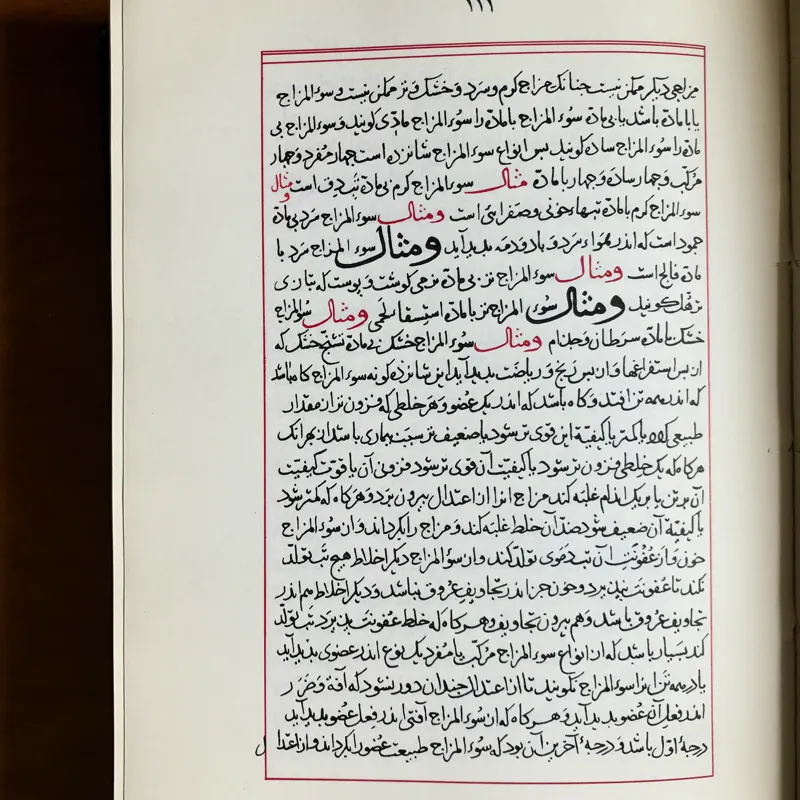 مزاجی دیکر ممکن نیست جنانک مزاج کرم و سرد و خشک و تر ممکن نیست و سوء المزاج
یا با مادّة باشد یا بی مادّة سوء المزاج با مادّة را سوء المزاج مادّی کویند و سوء المزاج بی
مادّة را سوء المزاج ساده کویند بس انواع سوء المزاج شانزده است جهار مفرد و جهار
مرکّب و جهار ساده و جهار با مادّة مثال سوء المزاج کرم بی مادّة تب دق است و مثال
سوء المزاج کرم با مادّة تبهاء خونی و صفرایی است و مثال سوء المزاج سرد بی مادّة
جمود است که اندر هواء سرد و باد و دمه بدید آید و مثال سوء المزاج سرد با
مادّة فالج است و مثال سوء المزاج تر بی مادّة نرمی کوشت و بوست که بتازی
ترهّل کویند و مثال سوء المزاج تر با مادّة استسقاء لحمی و مثال سوء المزاج
خشک با مادّة سرطان و جذام و مثال سوء المزاج خشک بی مادّة تشنّج خشک که
از بس استفراغها و از بس رنج و ریاضت بدید آید این شانزده کونه سوء المزاج کاه باشد
که اندر همه تن افتد و کاه باشد که اندر یک عضو و هر خلطی که فزون تر از مقدار
طبیعی یا کمتر یا بکیفیّة این قوی تر شود یا ضعیف تر سبب بیماری باشد از بهر انک
هر کاه که یک خلطی فزون تر شود یا کیفیّت آن قوی تر شود فزونی آن یا قوّت کیفیّت
آن بر تن یا بر یک اندام غلبه کند مزاج انرا از اعتدال بیرون برد و هر کاه که کمتر شود
یا کیفیّة آن ضعیف شود ضدّ آن خلط غلبه کند و مزاج را بکرداند و از سوء المزاج
خون و از عفونت آن تب دموی تولّد کند و از سؤ المزاج دیکر اخلاط هیچ تب تولّد
نکند تا عفونت نبذیرد و خون جز اندر تجاویف عروق نباشد و دیکر اخلاط هم اندر
تجاویف عروق باشد و هم بیرون تجاویف و هر کاه که خلط عفونت بذیرد تب تولّد
کند بسیار باشد که از انواع سوء المزاج مرکّب یا مفرد یک نوع اندر عضوی بدید آید
یا در همه تن انرا سوء المزاج نکویند تا از اعتدال جندان دور نشود که آفة و ضرر
اندر فعل آن عضو بدید آید و هر کاه که از سوء المزاج آفتی اندر فعل عضو بدید آید
درجهٔ اوّل باشد و درجهٔ آخرین آن بود که سوء المزاج طبیعت عضو را بکرداند و از اعتدال